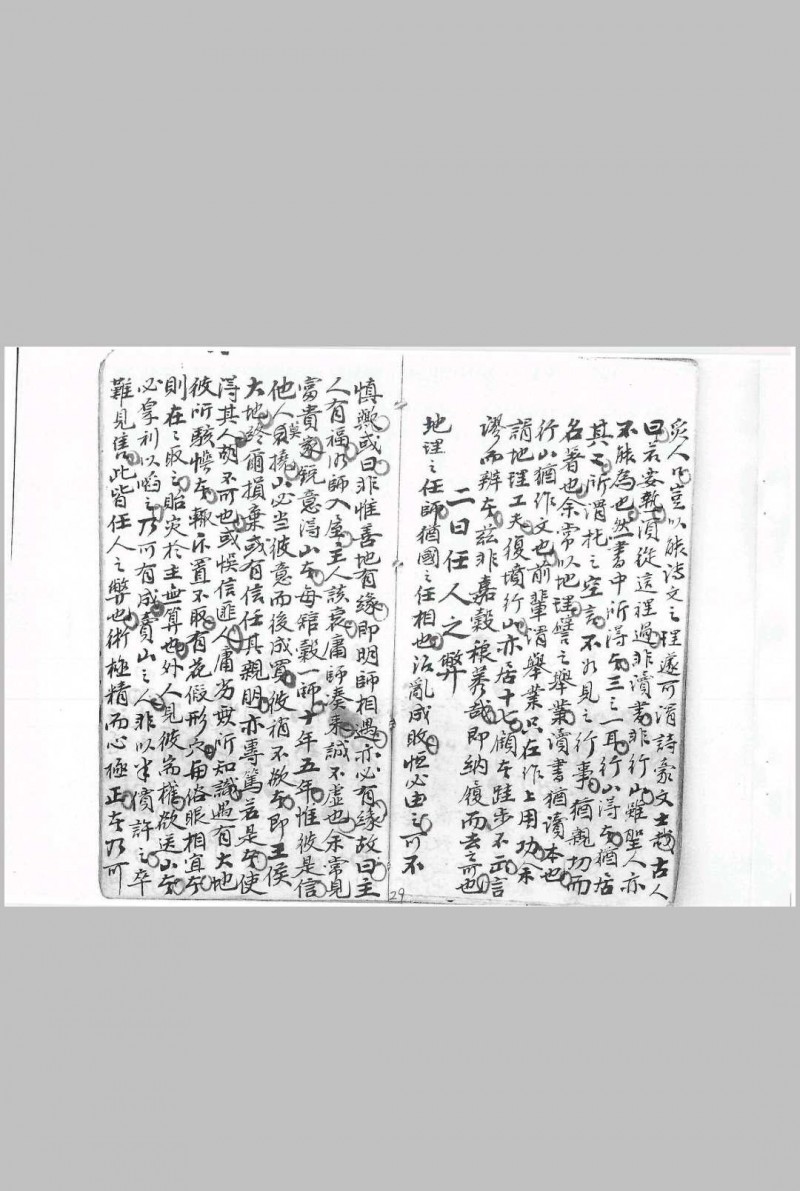 人豈以能誦文之理遂可謂詩豪文士哉古人
曰若要熟須從這裡過非讀書非行山雖聖人亦
不能為也然書中所得者三之一耳行山得者猶居
其二所謂托之空言不如見之行事猶親切而
名著也余常以地理譬之舉業讀書猶讀本也
行山猶作文也前輩謂舉業只在作上用功余
謂地理工夫復墳行山亦居十七顧者跬步不出言
謬而辨者茲非嘉穀稂莠哉即納履而去之可也
二曰任人之弊
地理之任師猶國之任相也治亂成敗恒必由之可不
慎歟或曰非惟善地有緣即明師相遇亦必有緣故曰主
人有福明師入廬主人該衰庸師湊來誠不虛也余常見
富貴家銳意得山者每館穀一師十年五年惟彼是信
他人貿撓山必當彼意而後成買彼稍不欲者即王侯
大地跨爾損棄或有信任其親朋亦專篤若是者使
得其人胡不可也或悞信匪人庸劣毋所知識遇有大地
彼所駭憷者輒诉置不取有花假形穴與俗眼相宜者
則在在取之貽災於主無算也外人見彼有權欲送山者
必拿利以啗之乃可有成賣山之人非以半價許之卒
難見售此皆任人之弊也術極精而心極正者乃可
29